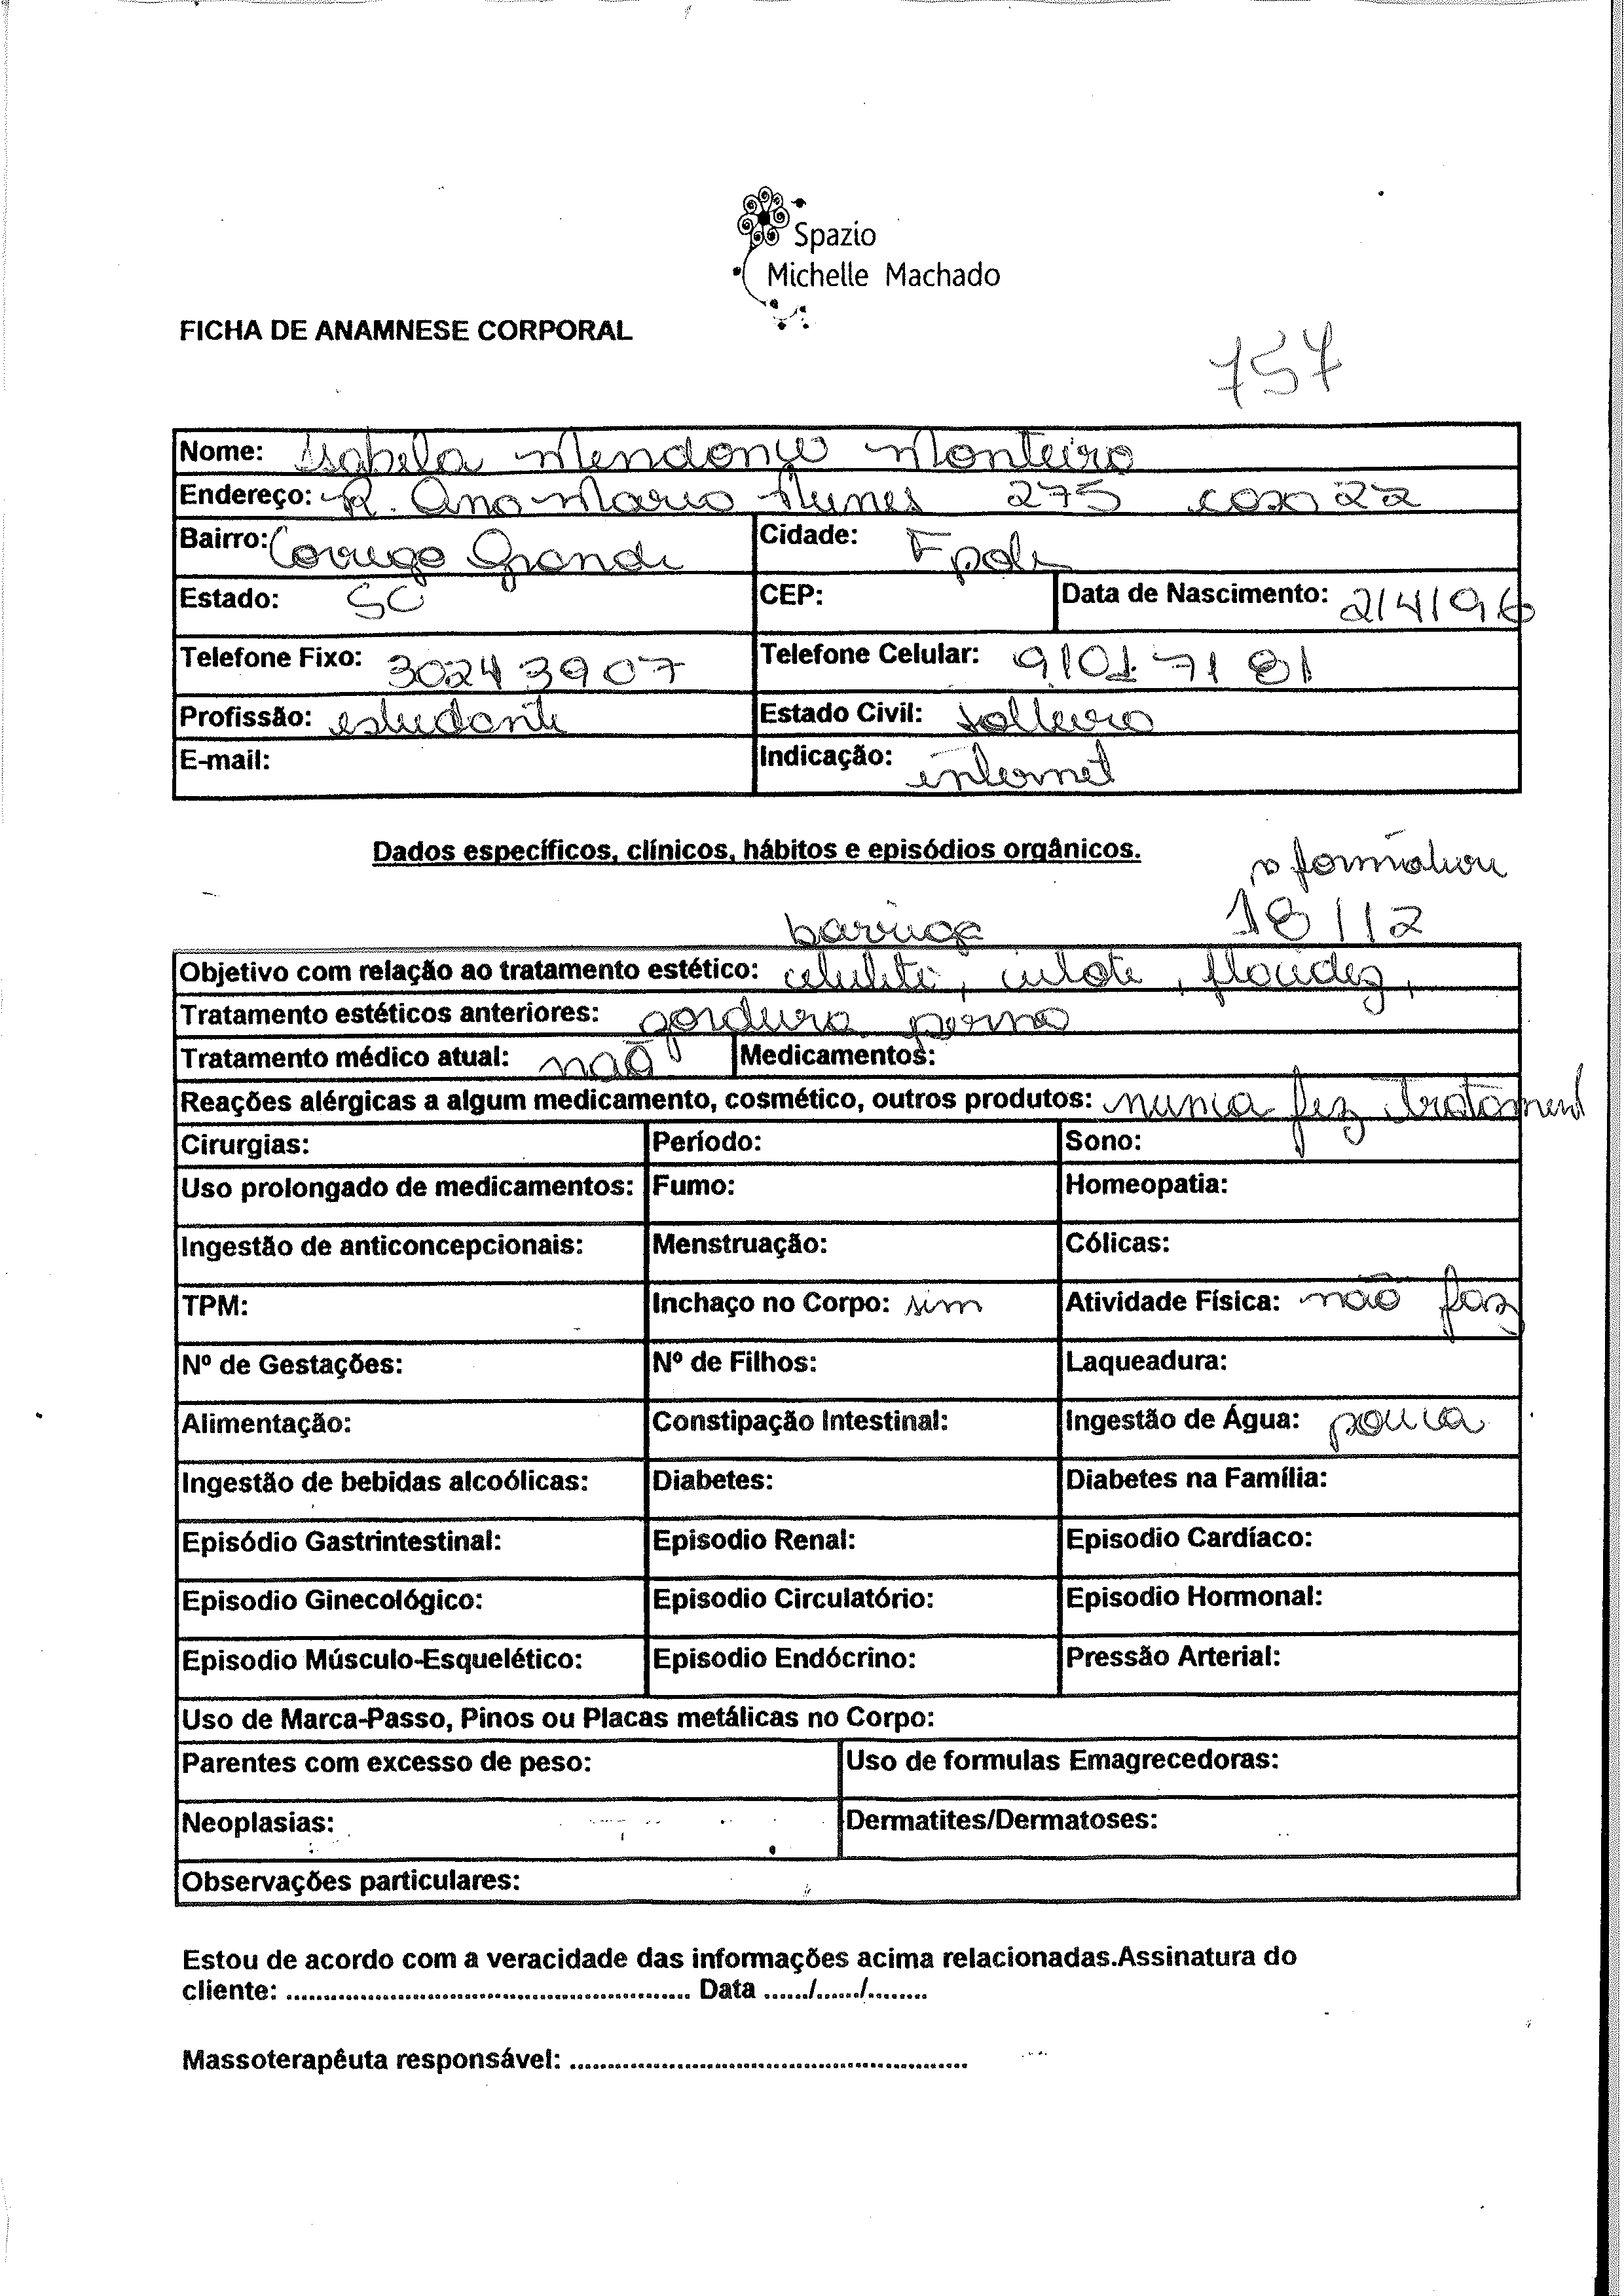 Spazio
Michelle Machado
FICHA DE ANAMNESE CORPORAL
757
Nome: Isabela Mendonça Monteiro
Endereço: R. Ana Maria Nunes 275 casa 22
Bairro: Corrego Grande Cidade: Fpolis
Estado: SC CEP: Data de Nascimento: 2/4/96
Telefone Fixo: 3024 3907 Telefone Celular: 9101 7181
Profissão: estudante Estado Civil: solteira
E-mail: Indicação: internet
Dados específicos, clínicos, hábitos e episódios orgânicos.
p formatura
18/12
barriga
Objetivo com relação ao tratamento estético: celulite, culote, flacidez,
Tratamento estéticos anteriores: gordura perna
Tratamento médico atual: não Medicamentos:
Reações alérgicas a algum medicamento, cosmético, outros produtos: nunca fez tratament
Cirurgias: Período: Sono:
Uso prolongado de medicamentos: Fumo: Homeopatia:
Ingestão de anticoncepcionais: Menstruação: Cólicas:
TPM: Inchaço no Corpo: sim Atividade Física: não faz
Nº de Gestações: Nº de Filhos: Laqueadura:
Alimentação: Constipação Intestinal: Ingestão de Água: pouca
Ingestão de bebidas alcoólicas: Diabetes: Diabetes na Família:
Episódio Gastrintestinal: Episodio Renal: Episodio Cardíaco:
Episodio Ginecológico: Episodio Circulatório: Episodio Hormonal:
Episodio Músculo-Esquelético: Episodio Endócrino: Pressão Arterial:
Uso de Marca-Passo, Pinos ou Placas metálicas no Corpo:
Parentes com excesso de peso: Uso de formulas Emagrecedoras:
Neoplasias: Dermatites/Dermatoses:
Observações particulares:
Estou de acordo com a veracidade das informações acima relacionadas.Assinatura do
cliente: ...................................................... Data ....../....../........
Massoterapêuta responsável: .....................................................